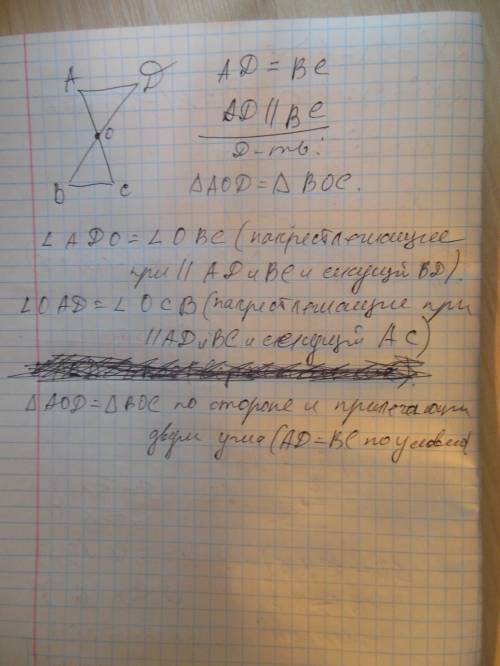 A D
O
B C
AD = BC
AD || BC
Д-ть:
△AOD = △BOC.
∠ADO = ∠OBC (накрестлежащие
при || AD и BC и секущей BD).
∠OAD = ∠OCB (накрестлежащие при
|| AD и BC и секущей AC)
△AOD = △BOC по стороне и прилежащим
двум углам (AD = BC по условию)